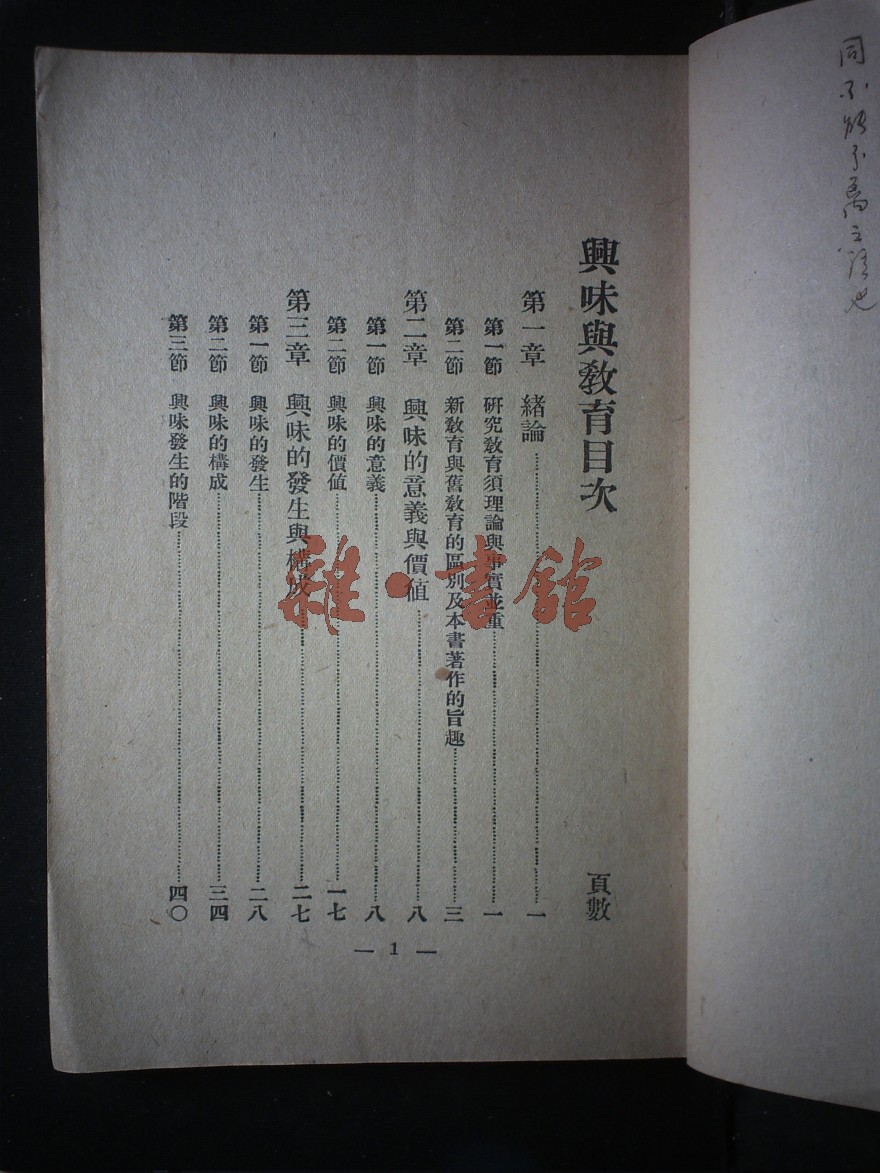 興味與教育目次
頁數
第一章 緒論……一
第一節 研究教育須理論與事實並重……一
第二節 新教育與舊教育的區別及本書著作的旨趣……三
第二章 興味的意義與價值……八
第一節 興味的意義……八
第二節 興味的價值……一七
第三章 興味的發生與構成……二七
第一節 興味的發生……二八
第二節 興味的構成……三四
第三節 興味發生的階段……四〇
— 1 —
雜·書館